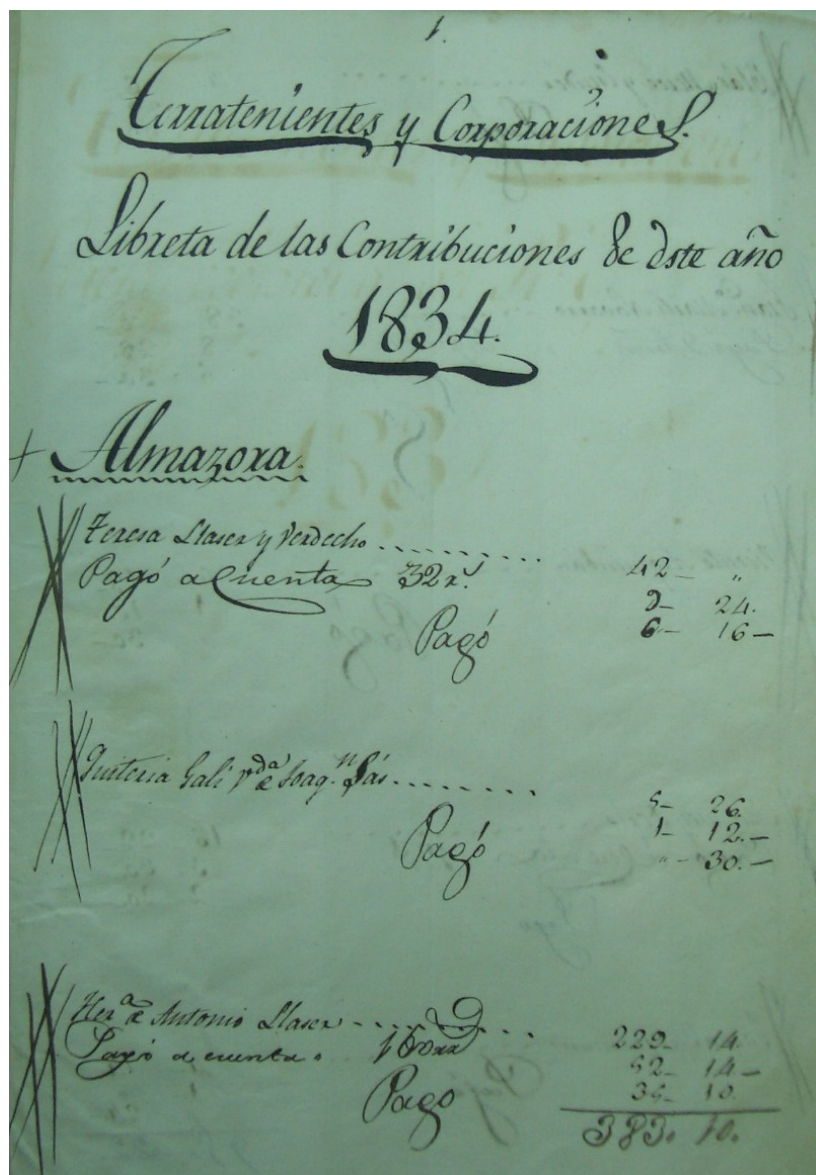 1.
Terratenientes y Corporaciones.
Libreta de las Contribuciones de este año
1834.
+ Almazora.
Teresa Llaser y Verdecho
Pagó a Cuenta 32 r.s 42 — „
9 — 24.
Pagó 6 — 16 —
Quiteria Gali v.da de Joaq.n Pás
5 — 26.
Pagó 1 — 12. —
„ — 30. —
Her.a de Antonio Llaser
Pagó a cuenta. 229 — 14.
52 — 14 —
Pago 35 — 10.
383. 10.